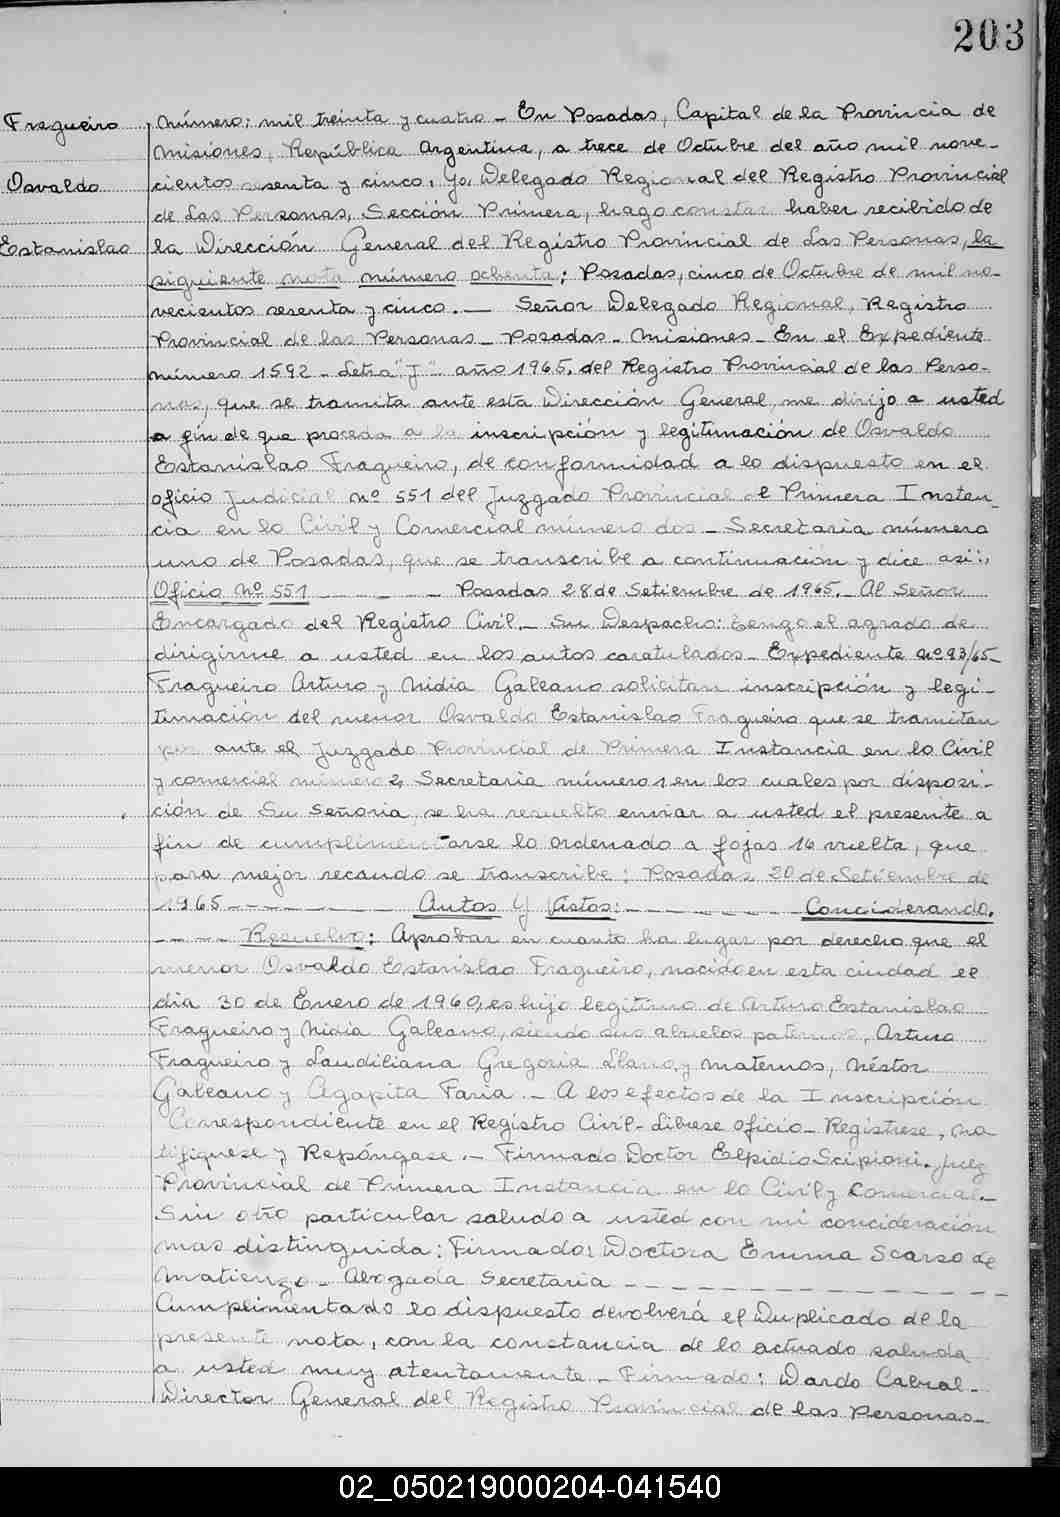 203
Fragueiro
Osvaldo
Estanislao
Número: mil treinta y cuatro - En Posadas, Capital de la Provincia de
Misiones, República Argentina, a trece de Octubre del año mil nove-
cientos sesenta y cinco, Yo, Delegado Regional del Registro Provincial
de las Personas, Sección Primera, hago constar haber recibido de
la Dirección General del Registro Provincial de las Personas, la
siguiente nota número ochenta; Posadas, cinco de Octubre de mil no-
vecientos sesenta y cinco. — Señor Delegado Regional, Registro
Provincial de las Personas - Posadas - Misiones - En el Expediente
número 1592 - Letra "J" año 1965, del Registro Provincial de las Perso-
nas, que se tramita ante esta Dirección General, me dirijo a usted
a fin de que proceda a la inscripción y legitimación de Osvaldo
Estanislao Fragueiro, de conformidad a lo dispuesto en el
oficio Judicial nº 551 del Juzgado Provincial de Primera Instan-
cia en lo Civil y Comercial número dos - Secretaria número
uno de Posadas, que se transcribe a continuación y dice asi:,
Oficio Nº 551 - - - - - Posadas 28 de Setiembre de 1965.- Al Señor
Encargado del Registro Civil.- Su Despacho: Tengo el agrado de
dirigirme a usted en los autos caratulados - Expediente nº 93/65-
Fragueiro Arturo y Nidia Galeano solicitan inscripción y legi-
timación del menor Osvaldo Estanislao Fragueiro que se tramitan
por ante el Juzgado Provincial de Primera Instancia en lo Civil
y comercial número 2, Secretaria número 1 en los cuales por disposi-
ción de Su Señoria, se ha resuelto enviar a usted el presente a
fin de cumplimentarse lo ordenado a fojas 16 vuelta, que
para mejor recaudo se transcribe: Posadas 20 de Setiembre de
1965 - - - - - - - Autos Y Vistos: - - - - - - - Conciderando.
- - - - Resuelvo: Aprobar en cuanto ha lugar por derecho que el
menor Osvaldo Estanislao Fragueiro, nacido en esta ciudad el
dia 30 de Enero de 1960, es hijo legitimo de Arturo Estanislao
Fragueiro y Nidia Galeano, siendo sus abuelos paternos, Arturo
Fragueiro y Laudiliana Gregoria Llano y maternos, Néstor
Galeano y Agapita Faria.- A los efectos de la Inscripción
Correspondiente en el Registro Civil - Librese oficio - Registrese, no
tifiquese y Repóngase.- Firmado Doctor Elpidio Scipioni. Juez
Provincial de Primera Instancia en lo Civil y Comercial.-
Sin otro particular saludo a usted con mi concideración
mas distinguida: Firmado: Doctora Emma Scarso de
Matienzo - Abogada Secretaria - - - - - - - - - - -
Cumplimentado lo dispuesto devolverá el Duplicado de la
presente nota, con la constancia de lo actuado saluda
a usted muy atentamente - Firmado: Dardo Cabral -
Director General del Registro Provincial de las Personas -
02_050219000204-041540